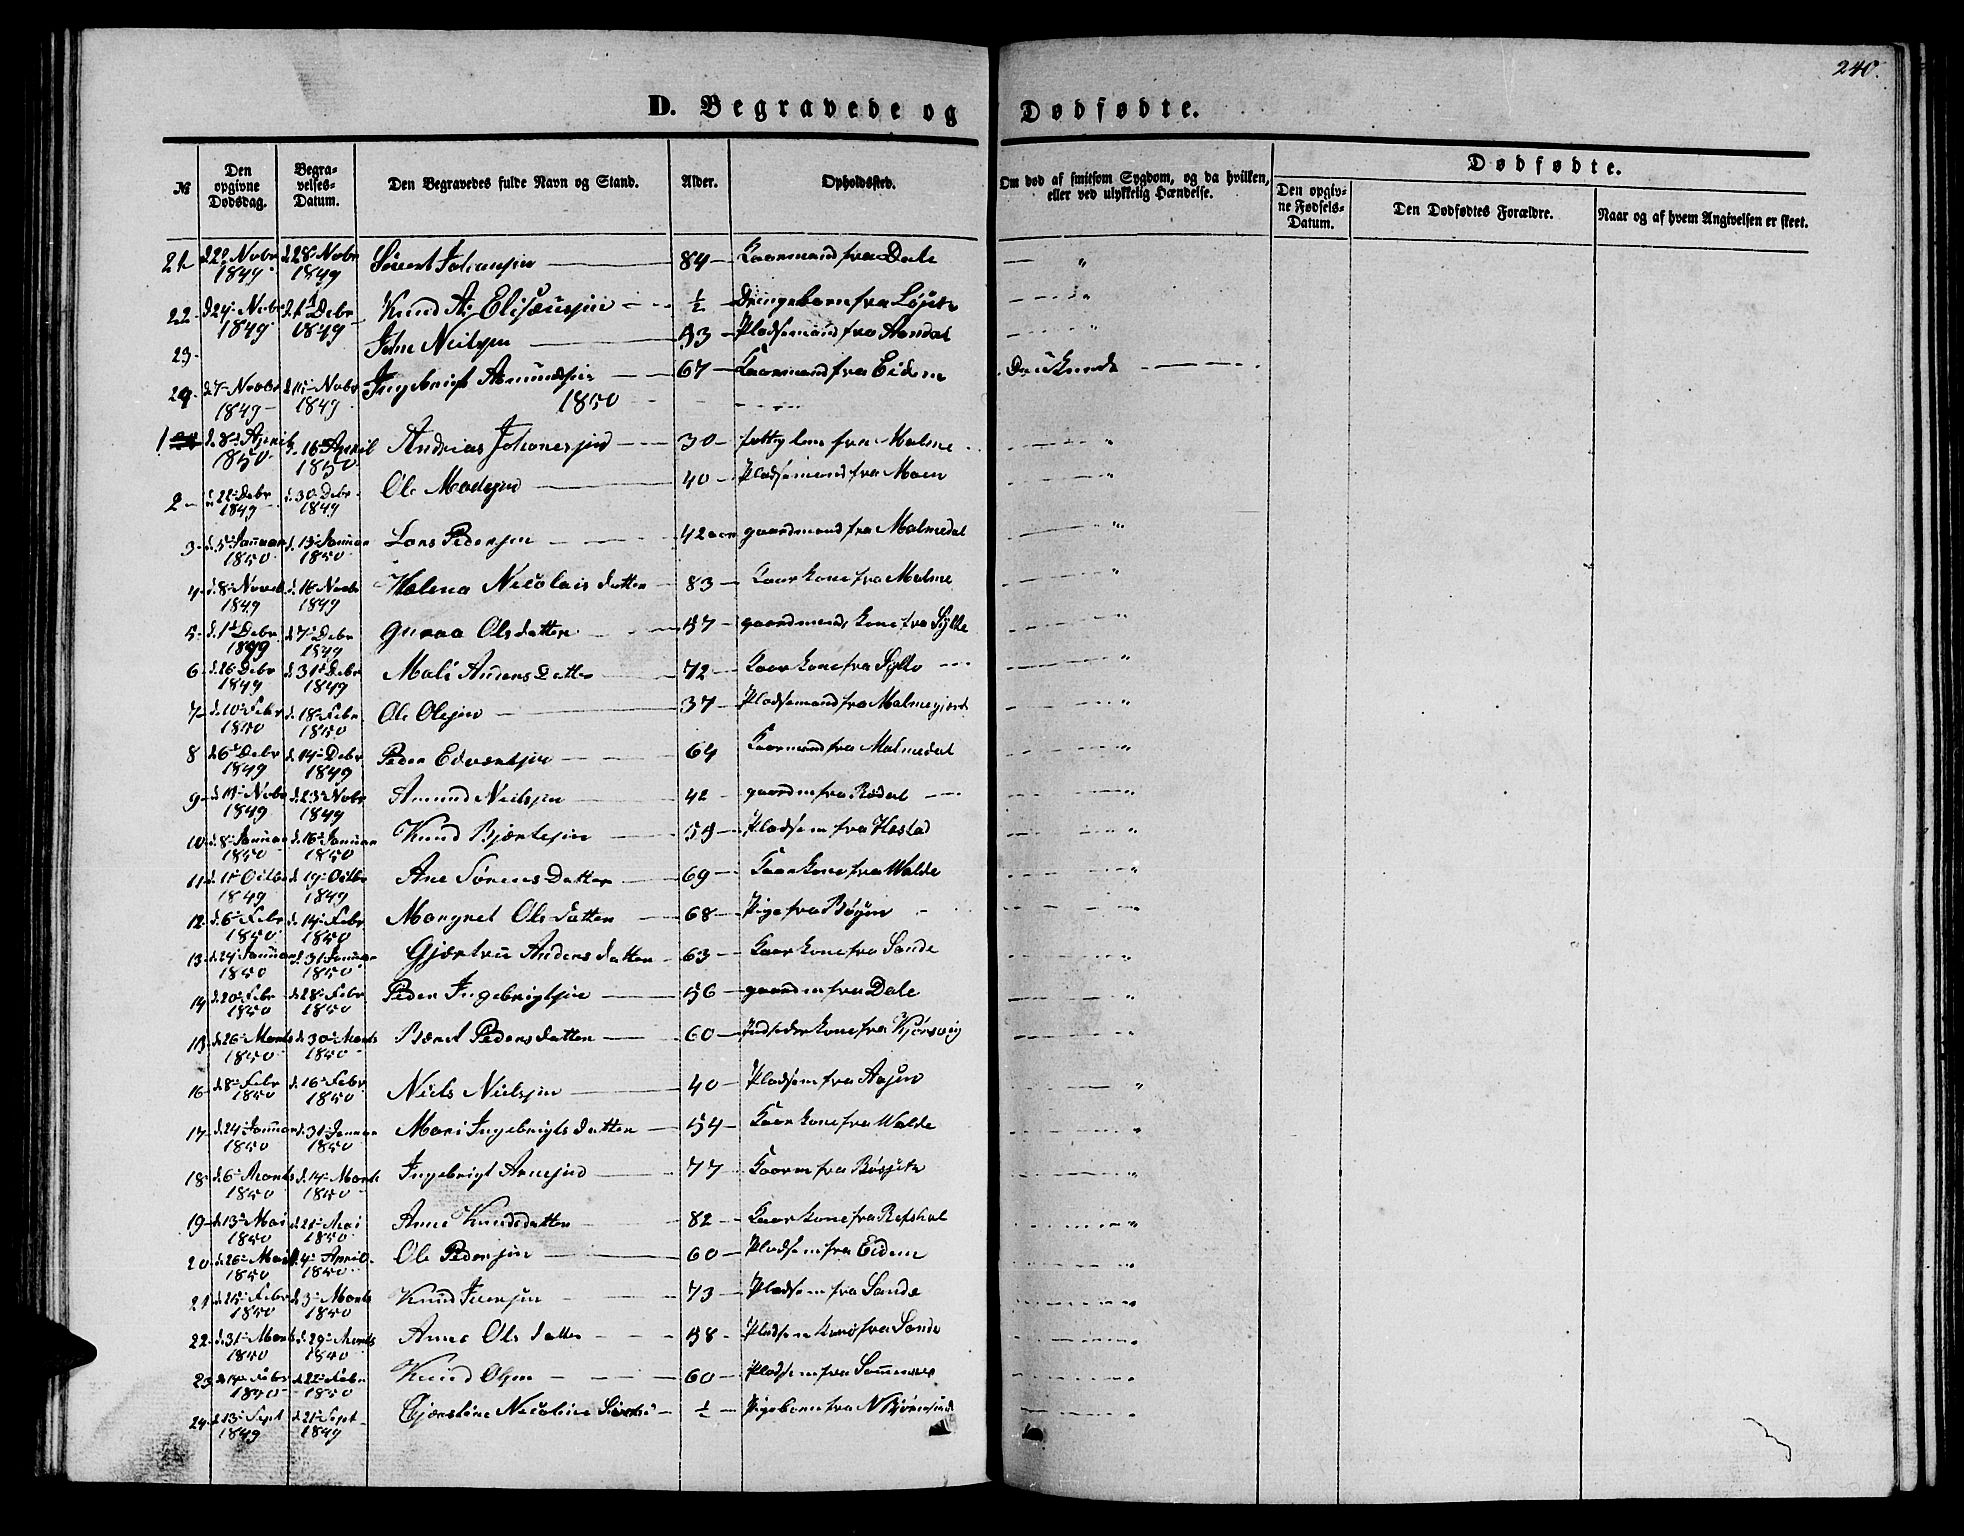 240.
D. Begravede og Dødfødte.
№ | Den opgivne Dødsdag. | Begravelses-Datum. | Den Begravedes fulde Navn og Stand. | Alder. | Opholdssted. | Om død af smitsom Sygdom, og da hvilken, eller ved ulykkelig Hændelse. | Dødfødte. Den opgivne Fødsels-Datum. | Den Dødfødtes Forældre. | Naar og af hvem Angivelsen er skeet.
21 d. Novbr 1849 d 28 Novbr 1849 Johansen 84 Kaarmand fra Dale
22 d 24 Novbr 1849 d. 1 Debr 1849 Knud A. Elisæusen ½ Drengebarn fra
23 John Neilsen 53 Pladsemand fra
24 d 7 Novbr 1849 d. Novbr 1849 Ingebrigt Amundsen 67 Kaarmand fra Eidem Druknede
1850
1 d. 8 April 1850 d. 16 April 1850 Andreas Johanesen 30 fattiglem fra Malme
2 d. 22 Debr 1849 d. 30 Debr 1849 Ole Madsen 40 Pladsemand fra Moen
3 d. 5 Januar 1850 d. 13 Januar 1850 Lars Pedersen 42 aar gaardmand fra Malmedal
4 d. 8 Novbr 1849 d. 16 Novbr 1849 Helena Nicolais datter 83 Kaarkone fra Malme
5 d. 1 Debr 1849 d 7 Debr 1849 Guraa Olsdatter 57 gaardmands kone fra Sylte
6 d. 26 Debr 1849 d. 31 Debr 1849 Mali Anders Datter 72 Kaarkone fra Sylte
7 d. 10 Febr 1850 d. 18 Febr 1850 Ole Olesen 37 Pladsemand fra Malmegjerd
8 d 6 Debr 1849 d. 14 Debr 1849 Peder Edvartsen 64 Kaarmand fra Malmedal
9 d. Novbr 1849 d. 23 Novbr 1849 Amund Neilsen 42 gaardm fra Rødal
10 d. 8 Januar 1850 d. 16 Januar 1850 Knud Bjærtesen 59 Pladsem fra Hostad
11 d. 11 Octbr 1849 d. 19 Octbr 1849 Ane Sørens Datter 69 Kaarkone fra Walde
12 d. 6 Febr 1850 d. 14 Febr 1850 Margret Olsdatter 68 Pige fra Bøen
13 d. 24 Januar 1850 d. 31 Januar 1850 Gjærtru Anders datter 63 Kaarkone fra Sande
14 d. 20 Febr 1850 d. 28 Febr 1850 Peder Ingebrigtsen 56 gaardm fra Dale
15 d. 26 Marts 1850 d. 30 Marts 1850 Bæret Peders datter 60 Indsederkone fra Kjørsvig
16 d. 8 Febr 1850 d. 16 Febr 1850 Niels Nielsen 40 Pladsem fra
17 d. 24 Januar 1850 d. 31 Januar 1850 Mari Ingebrigts datter 54 Kaarkone fra Walde
18 d. 6 Marts 1850 d. 14 Marts 1850 Ingebrigt Arnesen 77 Kaarm fra
19 d. 13 Mai 1850 d. 21 Mai 1850 Anne Knudsdatter 82 Kaarkone fra
20 d. 26 1850 d. 4 April 1850 Ole Pedersen 60 Pladsem fra Eidem
21 d. 25 Febr 1850 d. 3 Marts 1850 Knud Iversen 73 Pladsem fra Sande
22 d. 31 Marts 1850 d. 29 Marts 1850 Anne Ols datter 58 Pladsem Kone fra Sande
23 d. 14 Febr 1850 d. 22 Febr 1850 Knud Olsen 60 Pladsem fra
24 d. 13 Sept 1849 d. 21 Sept 1849 Nicoline ½ Pigebarn fra